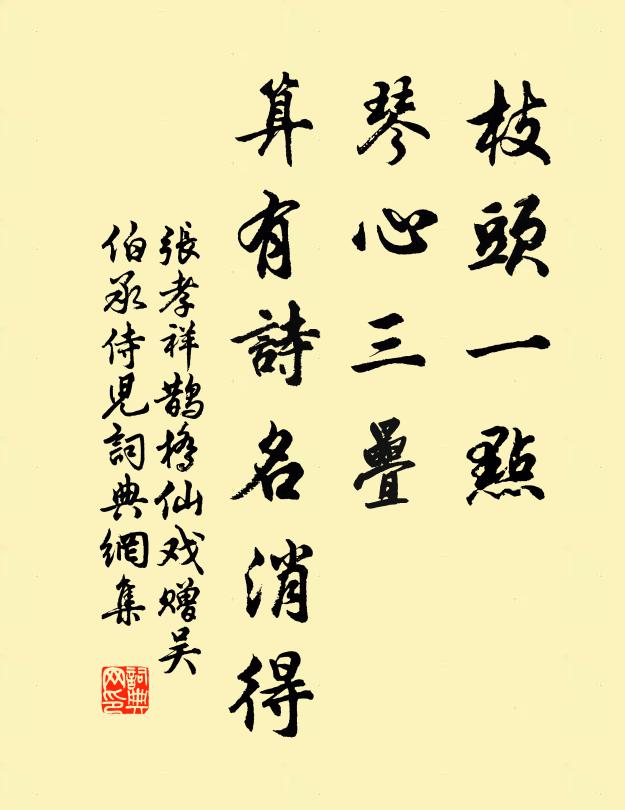 枝頭一點
琴心三疊
算有詩名消得
張孝祥鵲橋仙戏赠吴
伯承侍児詞典網集
詞典網印